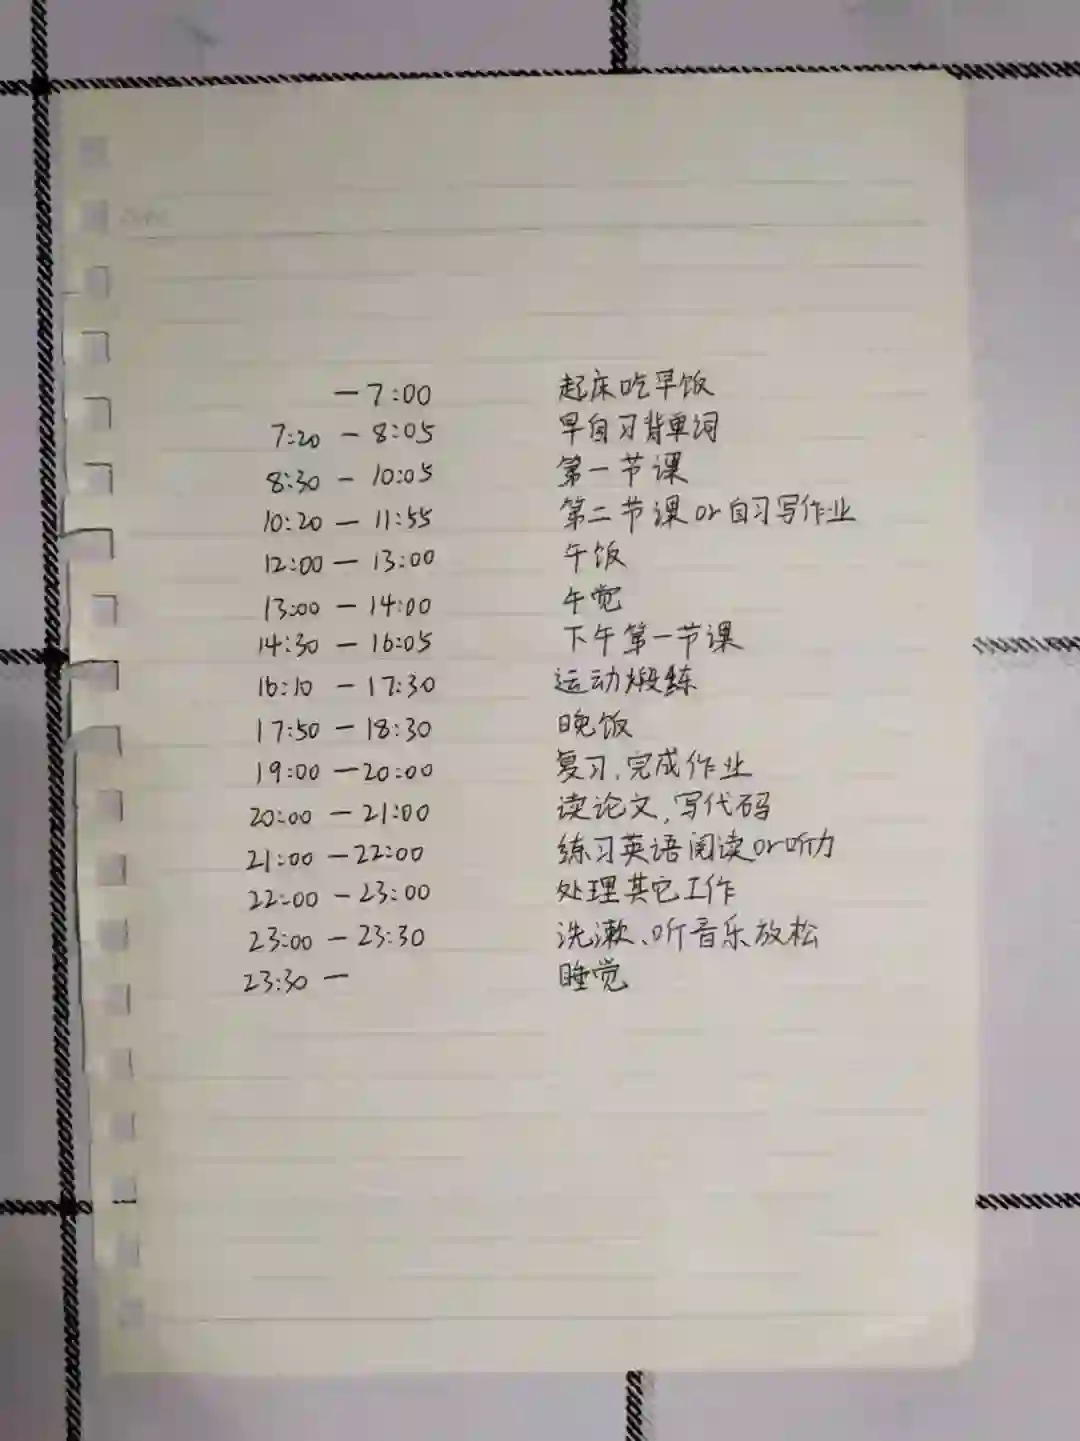 —7:00 起床吃早饭
7:20 — 8:05 早自习背单词
8:30 — 10:05 第一节课
10:20 — 11:55 第二节课or自习写作业
12:00 — 13:00 午饭
13:00 — 14:00 午觉
14:30 — 16:05 下午第一节课
16:10 — 17:30 运动煅练
17:50 — 18:30 晚饭
19:00 — 20:00 复习,完成作业
20:00 — 21:00 读论文,写代码
21:00 — 22:00 练习英语阅读or听力
22:00 — 23:00 处理其它工作
23:00 — 23:30 洗漱、听音乐放松
23:30 — 睡觉